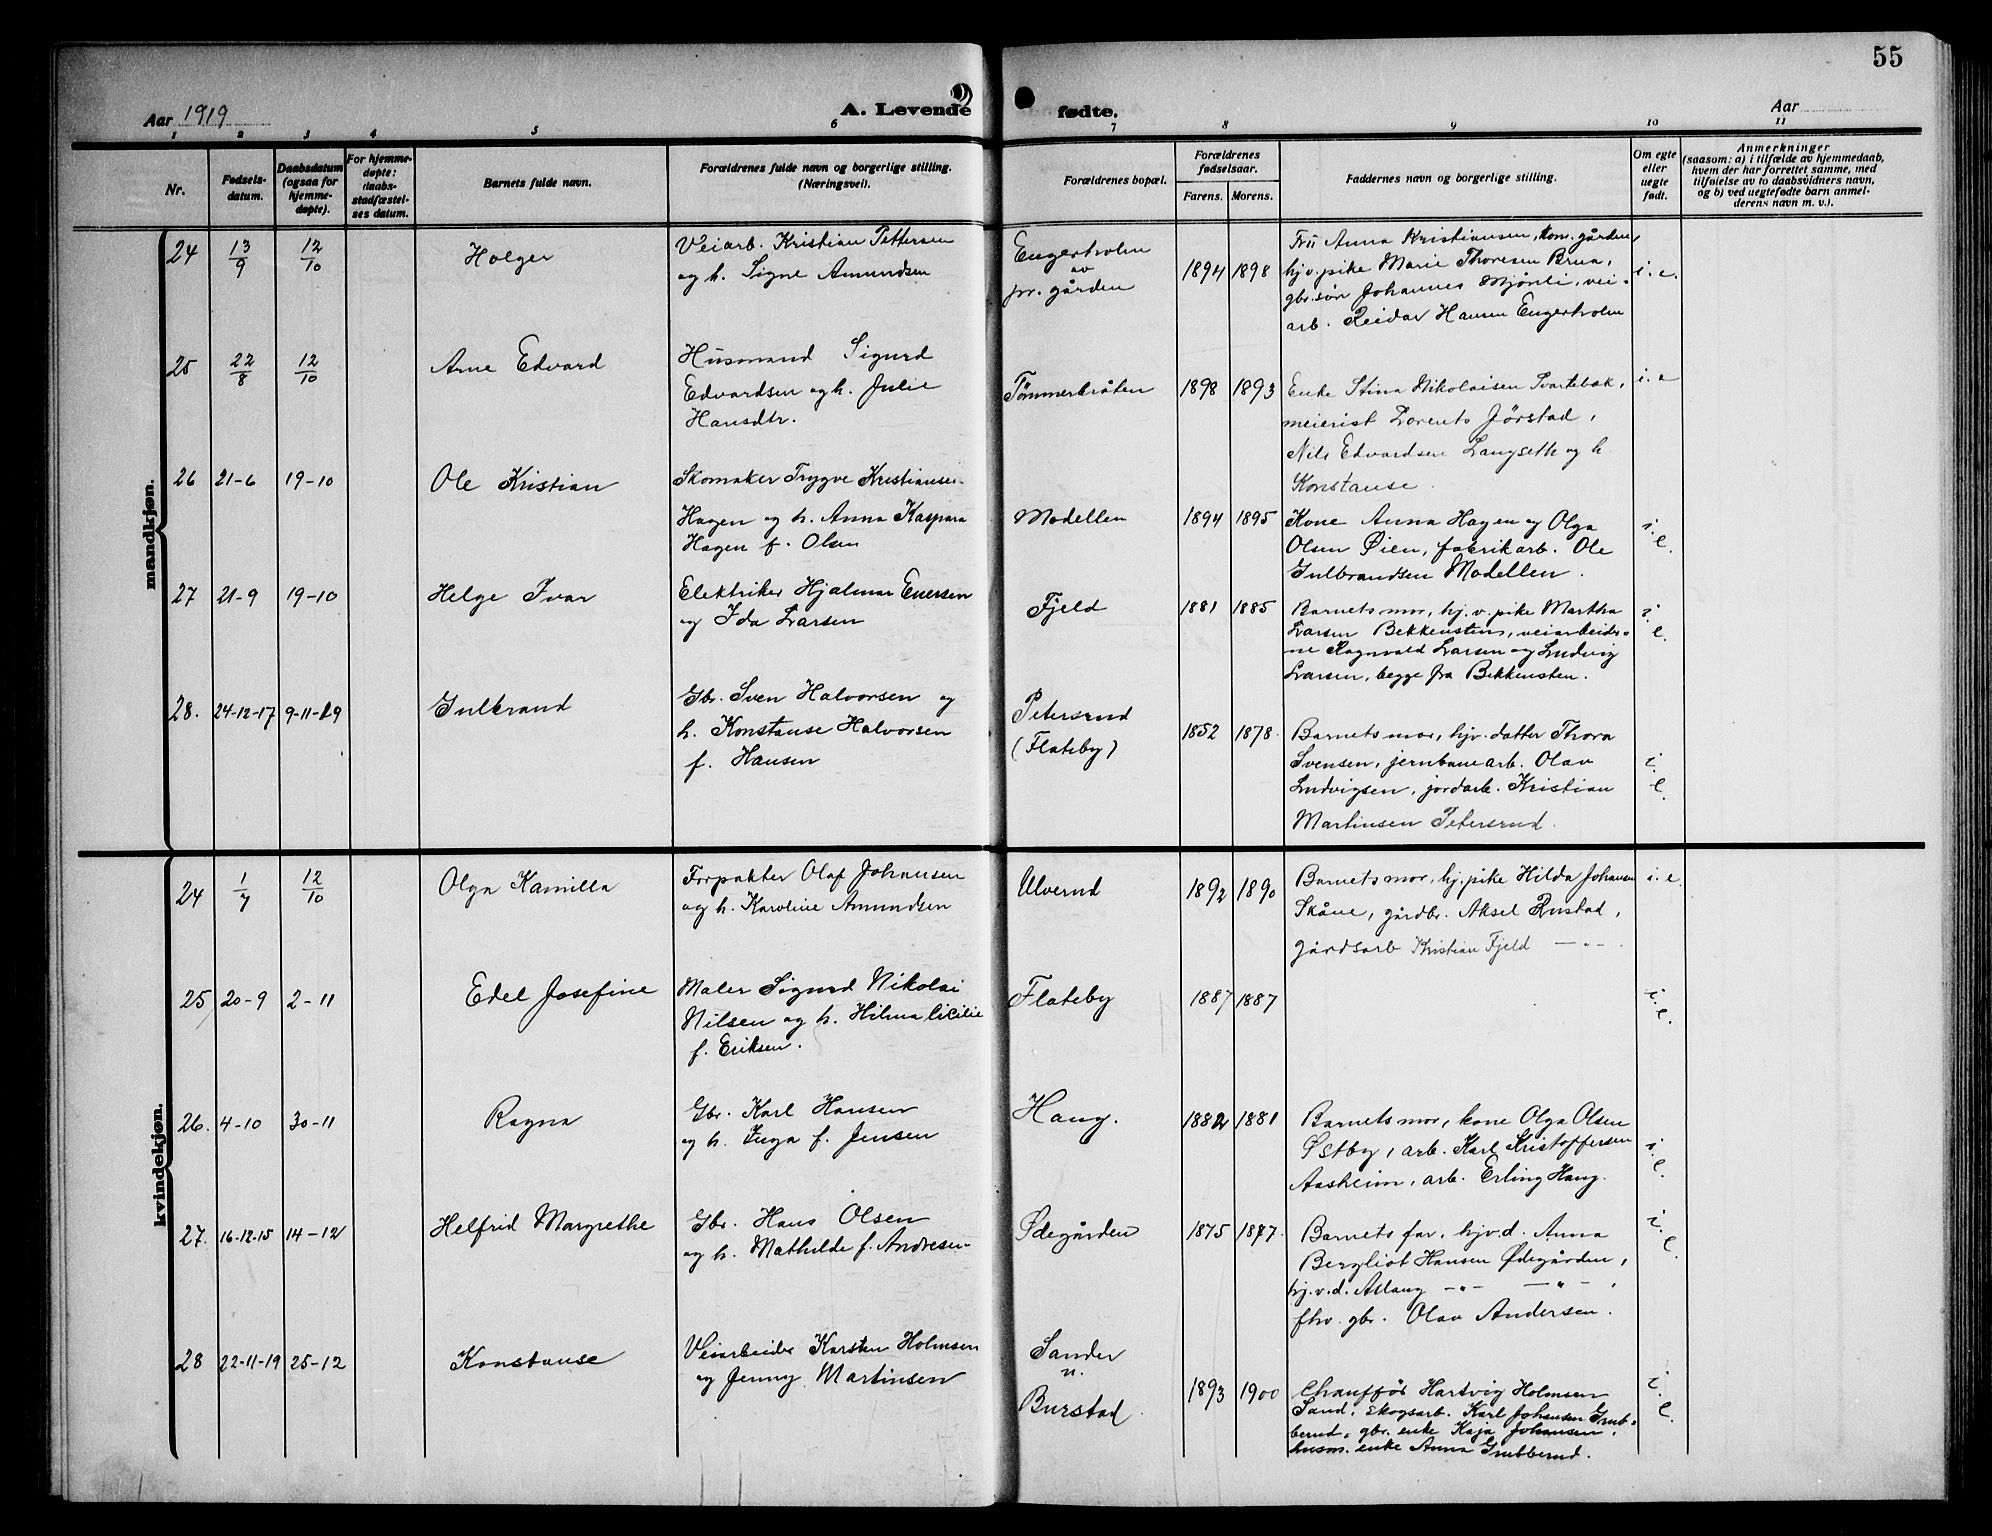 55
Aar 1919
A. Levende
fødte.
Aar
1 2 3 4 5 6 7 8 9 10 11
Nr.
Fødsels-
datum.
Daabsdatum
(ogsaa for
hjemme-
døpte).
For hjemme-
døpte:
daabs-
stadfæstel-
ses datum.
Barnets fulde navn.
Forældrenes fulde navn og borgerlige stilling.
(Næringsvei).
Forældrenes bopæl.
Forældrenes
fødselsaar.
Farens. Morens.
Faddernes navn og borgerlige stilling.
Om egte
eller
uegte
født.
Anmerkninger
(saasom: a) i tilfælde av hjemmedaab,
hvem der har forrettet samme, med
tilføielse av to daabsvidners navn,
og b) ved uegtefødte barn anmel-
derens navn m. v.).
mandkjøn.
24
13/9
12/10
Holger
Veiarb. Kristian Pettersen
og h. Signe Amundsen
Engerholm
av
pr. gården
1894 1898
Fru Anna Kristiansen, gården,
hj.v. pike Marie Thoresen Brua,
gbr.søn Johannes Mjønli, vei-
arb. Reidar Hansen Engerholm
i. e.
25
22/8
12/10
Arne Edvard
Husmand Sigurd
Edvardsen og h. Julie
Hansdtr.
Tømmerbråten
1898 1893
Enke Stina Nikolaisen Svartebæk,
meierist Lorents Jørstad,
Nils Edvardsen Langseth og h.
Konstanse.
i. e
26
21-6
19-10
Ole Kristian
Skomaker Trygve Kristiansen
Hagen og h. Anna Kaspara
Hagen f. Olsen
Modellen
1894 1895
Kone Anna Hagen og Olga
Olsen Øien, fabrikarb. Ole
Gulbrandsen Modellen.
i. e.
27
21-9
19-10
Helge Ivar
Elektriker Hjalmar Enersen
og Ida Larsen
Fjeld
1881 1885
Barnets mor, hj.v. pike Martha
Larsen Bekkensten, veiarbeider-
ne Ragnvald Larsen og Ludvig
Larsen, begge fra Bekkensten.
i. e.
28.
24-12-17
9-11-19
Gulbrand
Gbr. Sven Halvorsen og
h. Konstanse Halvorsen
f. Hansen
Petersrud
(Flateby)
1852 1878.
Barnets mor, hjv. datter Thora
Svensen, jernbanearb. Olav
Ludvigsen, jordarb. Kristian
Martinsen Petersrud.
i. e.
kvindekjøn.
24
1/7
12/10
Olga Kamilla
Forpakter Olaf Johansen
og h. Karoline Amundsen
Ulverud
1892 1890
Barnets mor, hj.pike Hilda Johansen
Skåne, gårdbr. Aksel Rustad,
gårdsarb Kristian Fjeld — " —
i. e.
25
20-9
2-11
Edel Josefine
Maler Sigurd Nikolai
Nilsen og h. Hilma Cicilie
f. Eriksen.
Flateby
1887 1887
i. e.
26.
4-10
30-11
Ragna
Gbr. Karl Hansen
og h. Inga f. Jensen
Haug.
1882 1881
Barnets mor, kone Olga Olsen
Østby, arb. Karl Kristoffersen
Aasheim, arb. Erling Haug.
i. e.
27.
16-12-15
14-12
Helfrid Margrethe
Gbr. Hans Olsen
og h. Mathilde f. Andresen
Ødegården
1875 1877.
Barnets far, hjv.d. Anna
Bergliot Hansen Ødegården,
hj.v.d. Aslaug — " — — " —,
fhv. gbr. Olav Andersen.
i. e.
28
22-11-19
25-12
Konstanse
Veiarbeider Karsten Holmsen
og Jenny Martinsen
Sander
n.
Burstad.
1893 1900
Chauffør Hartvig Holmsen
Sand, skogsarb. Karl Johansen Grub-
berud, gbr. enke Kaja Johansen,
husm. enke Anna Grubberud.
i. e.